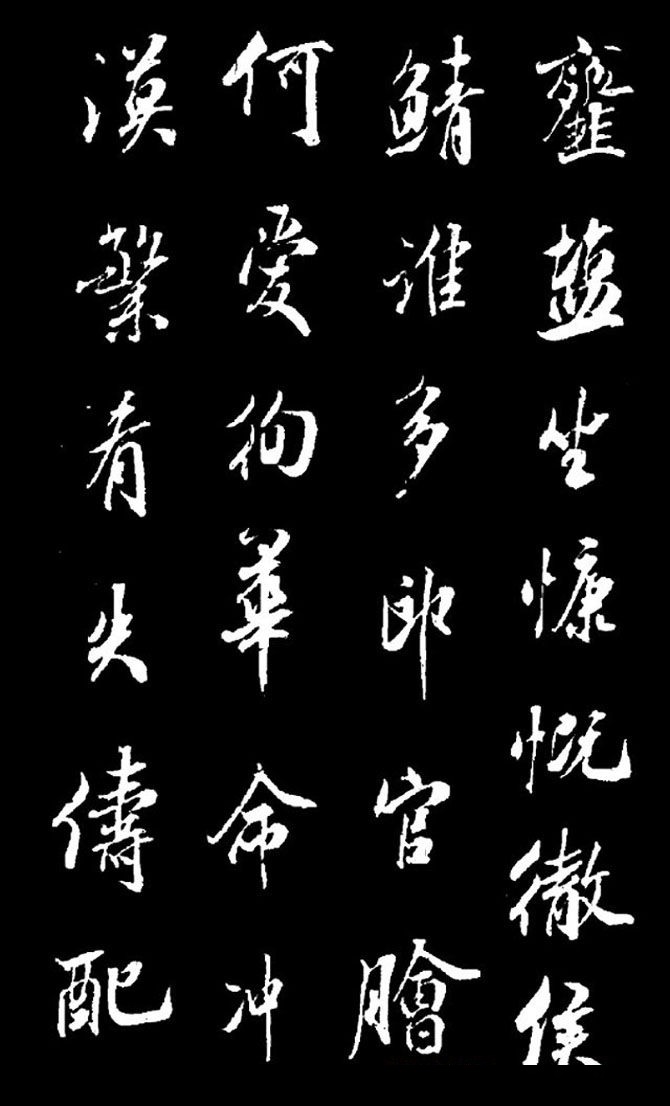 韲坐慷慨徹侯
鯖誰多郎官膾
何愛徇華命冲
漠槃肴失儔配